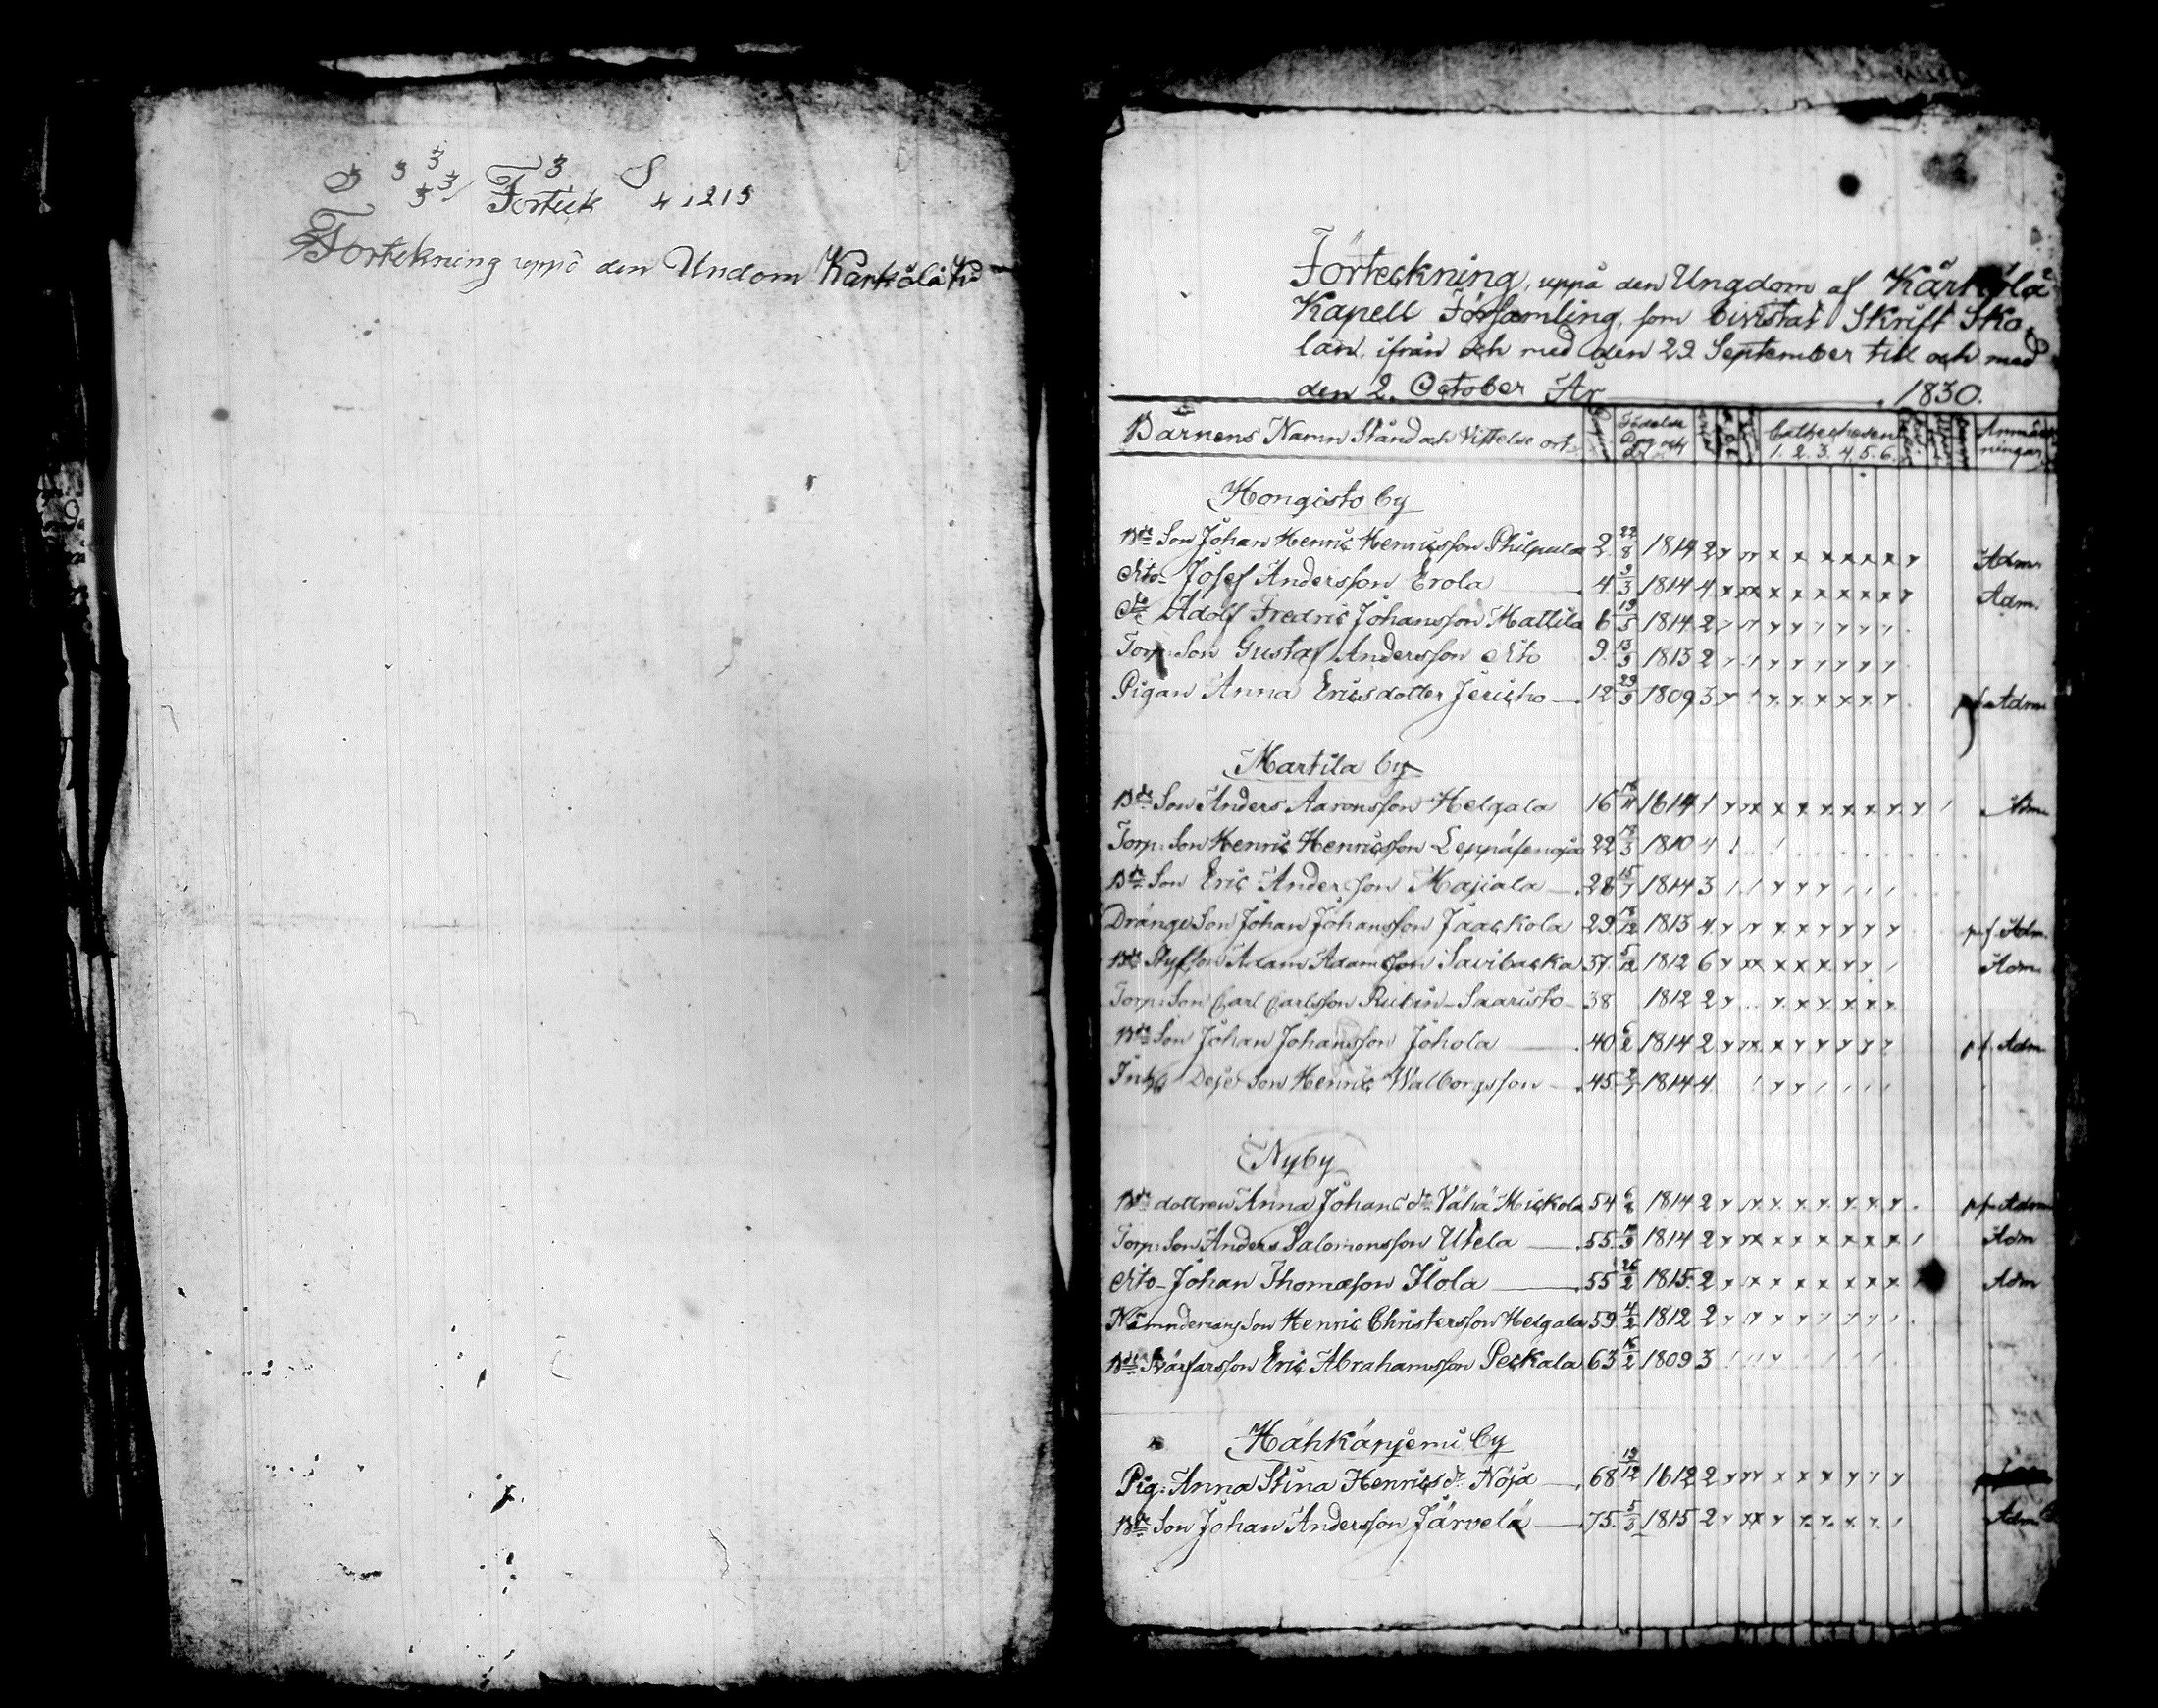 3 3 3
3 3 Forteck 3 S 4 1 2 1 5
Förtekning uppå den Undom Kärkölä K
Förteckning, uppå den Ungdom af Kärkölä
Kapell Församling, som bivistat Skrift Sko,
lan, ifrån och med den 29 September till och med
den 2. October År 1830.
Barnens Namn Stånd och Vistelse ort Födelse Dag och År Cathechesen 1. 2. 3. 4. 5. 6. Anmärkningar
Hongisto by
Bde Son Johan Henric Henricsson Philpula 2 22/8 1814 2 Adm.
dito Josef Andersson Erola 4 9/3 1814 4 Adm.
do Adolf Fredric Johansson Mattila 6 19/5 1814 2
Torp. Son Gustaf Andersson dito 9 13/9 1813 2
Pigan Anna Ericsdotter Jericho 12 29/9 1809 3 Adm
Martila by
Bde Son Anders Aaronsson Helgala 16 16/11 1814 1 Adm
Torp. Son Henric Henricsson Leppäsenoja 22 18/3 1810 4
Bde Son Eric Andersson Majiala 28 15/7 1814 3
Dränge Son Johan Johansson Jaackola 29 18/12 1813 4 pf. Adm.
Bde Styfson Adam Adamsson Savibacka 37 5/12 1812 6 Adm
Torp. Son Carl Carlsson Rubin Saaristo 38 1812 2
Bde Son Johan Johansson Johola 40 6/2 1814 2 pf. Adm
Inh. Deje Son Henric Walborgsson 45 2/7 1814 4
Nyby
Bde dottren Anna Johans dr Vähä Mickola 54 6/8 1814 2 pf. Adm
Torp. Son Anders Salomonsson Utela 55 10/9 1814 2 Adm
dito Johan Thomasson Ilola 55 26/2 1815 2 Adm
Nämndemans Son Henric Christersson Helgala 59 4/2 1812 2
Bde Svärfarsson Eric Abrahamsson Peckala 63 16/2 1809 3
Hähkänjemi by
Pig. Anna Stina Henrics dr Nöjd 68 19/12 1812 2
Bde Son Johan Andersson Järvelä 75 5/3 1815 2 Adm